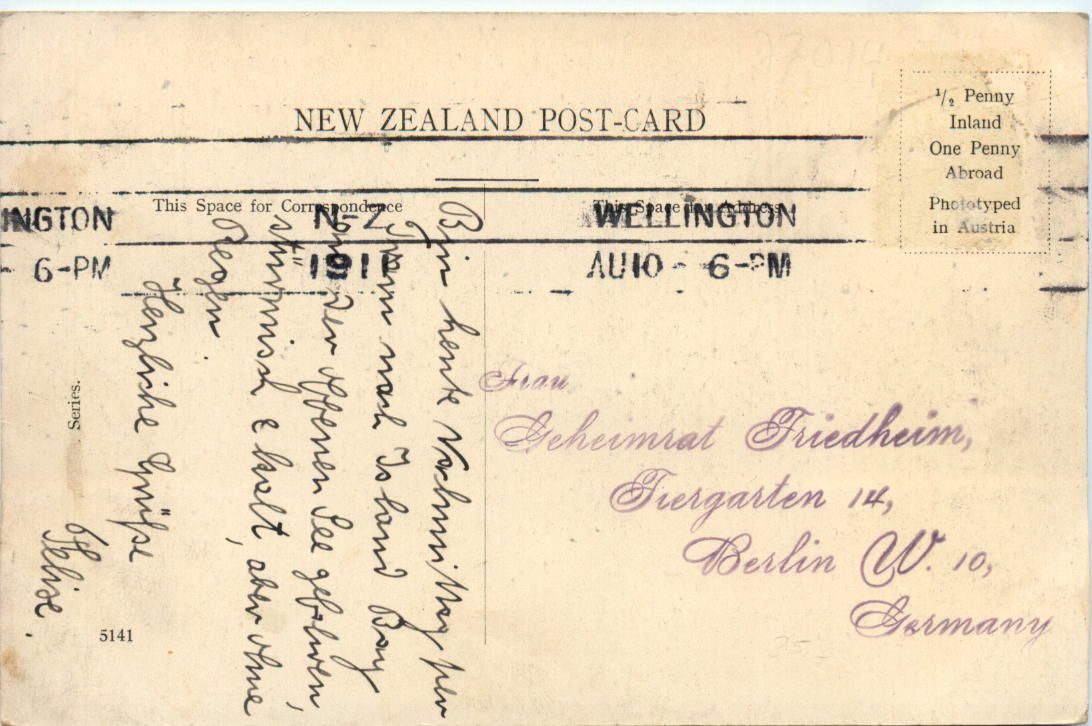 27074
NEW ZEALAND POST-CARD
½ Penny
Inland
One Penny
Abroad
Phototyped
in Austria
This Space for Correspondence
This Space for Address
INGTON
6-PM
N-Z
1911
WELLINGTON
AU10 - 6-PM
Bin heute Vormittag per
Tram nach Island Bay
an der offenen See gefahren,
stürmisch & kalt, aber ohne
Regen.
Herzliche Grüße
Frau
Geheimrat Friedheim,
Tiergarten 14,
Berlin W. 10,
Germany
Series.
5141
25.-